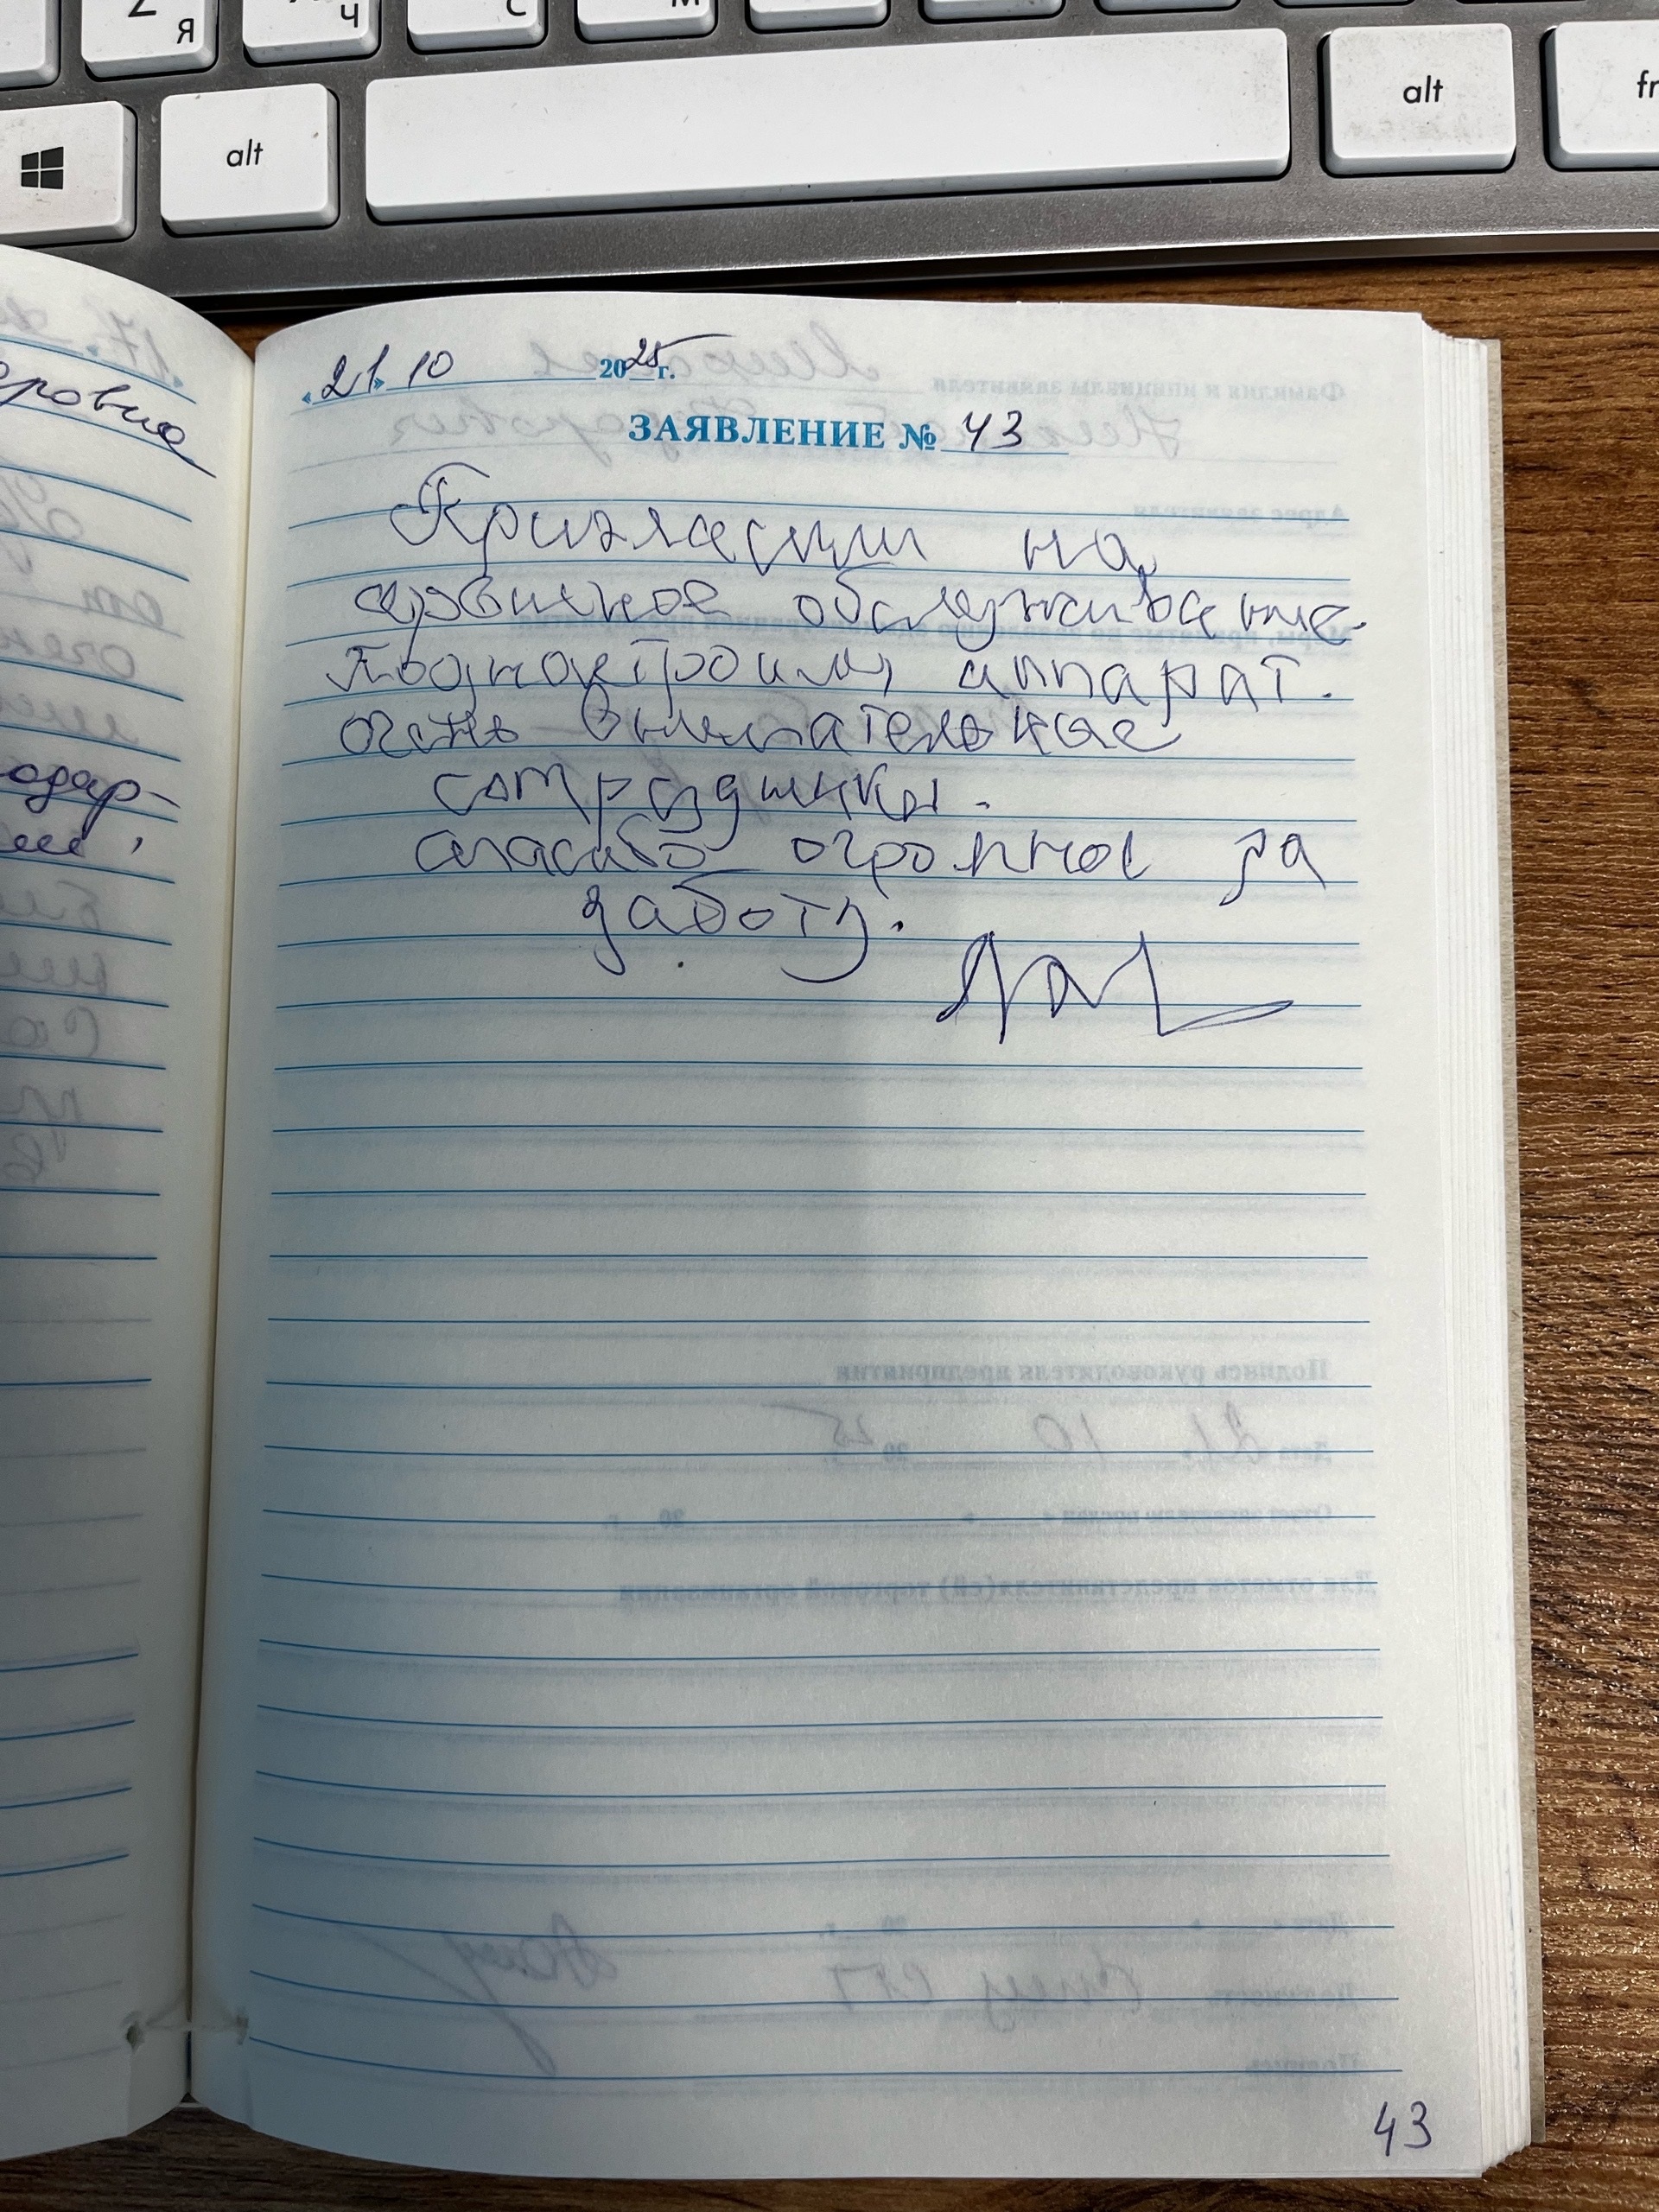 Я
Ч
С
М
alt
alt
fn
еровна
одар-
«21» 10 2025 г.
ЗАЯВЛЕНИЕ № 43
Пригласили на
сервисное обслуживание.
Поднастроили аппарат.
очень внимательные
сотрудники.
спасибо огромное за
заботу.
43